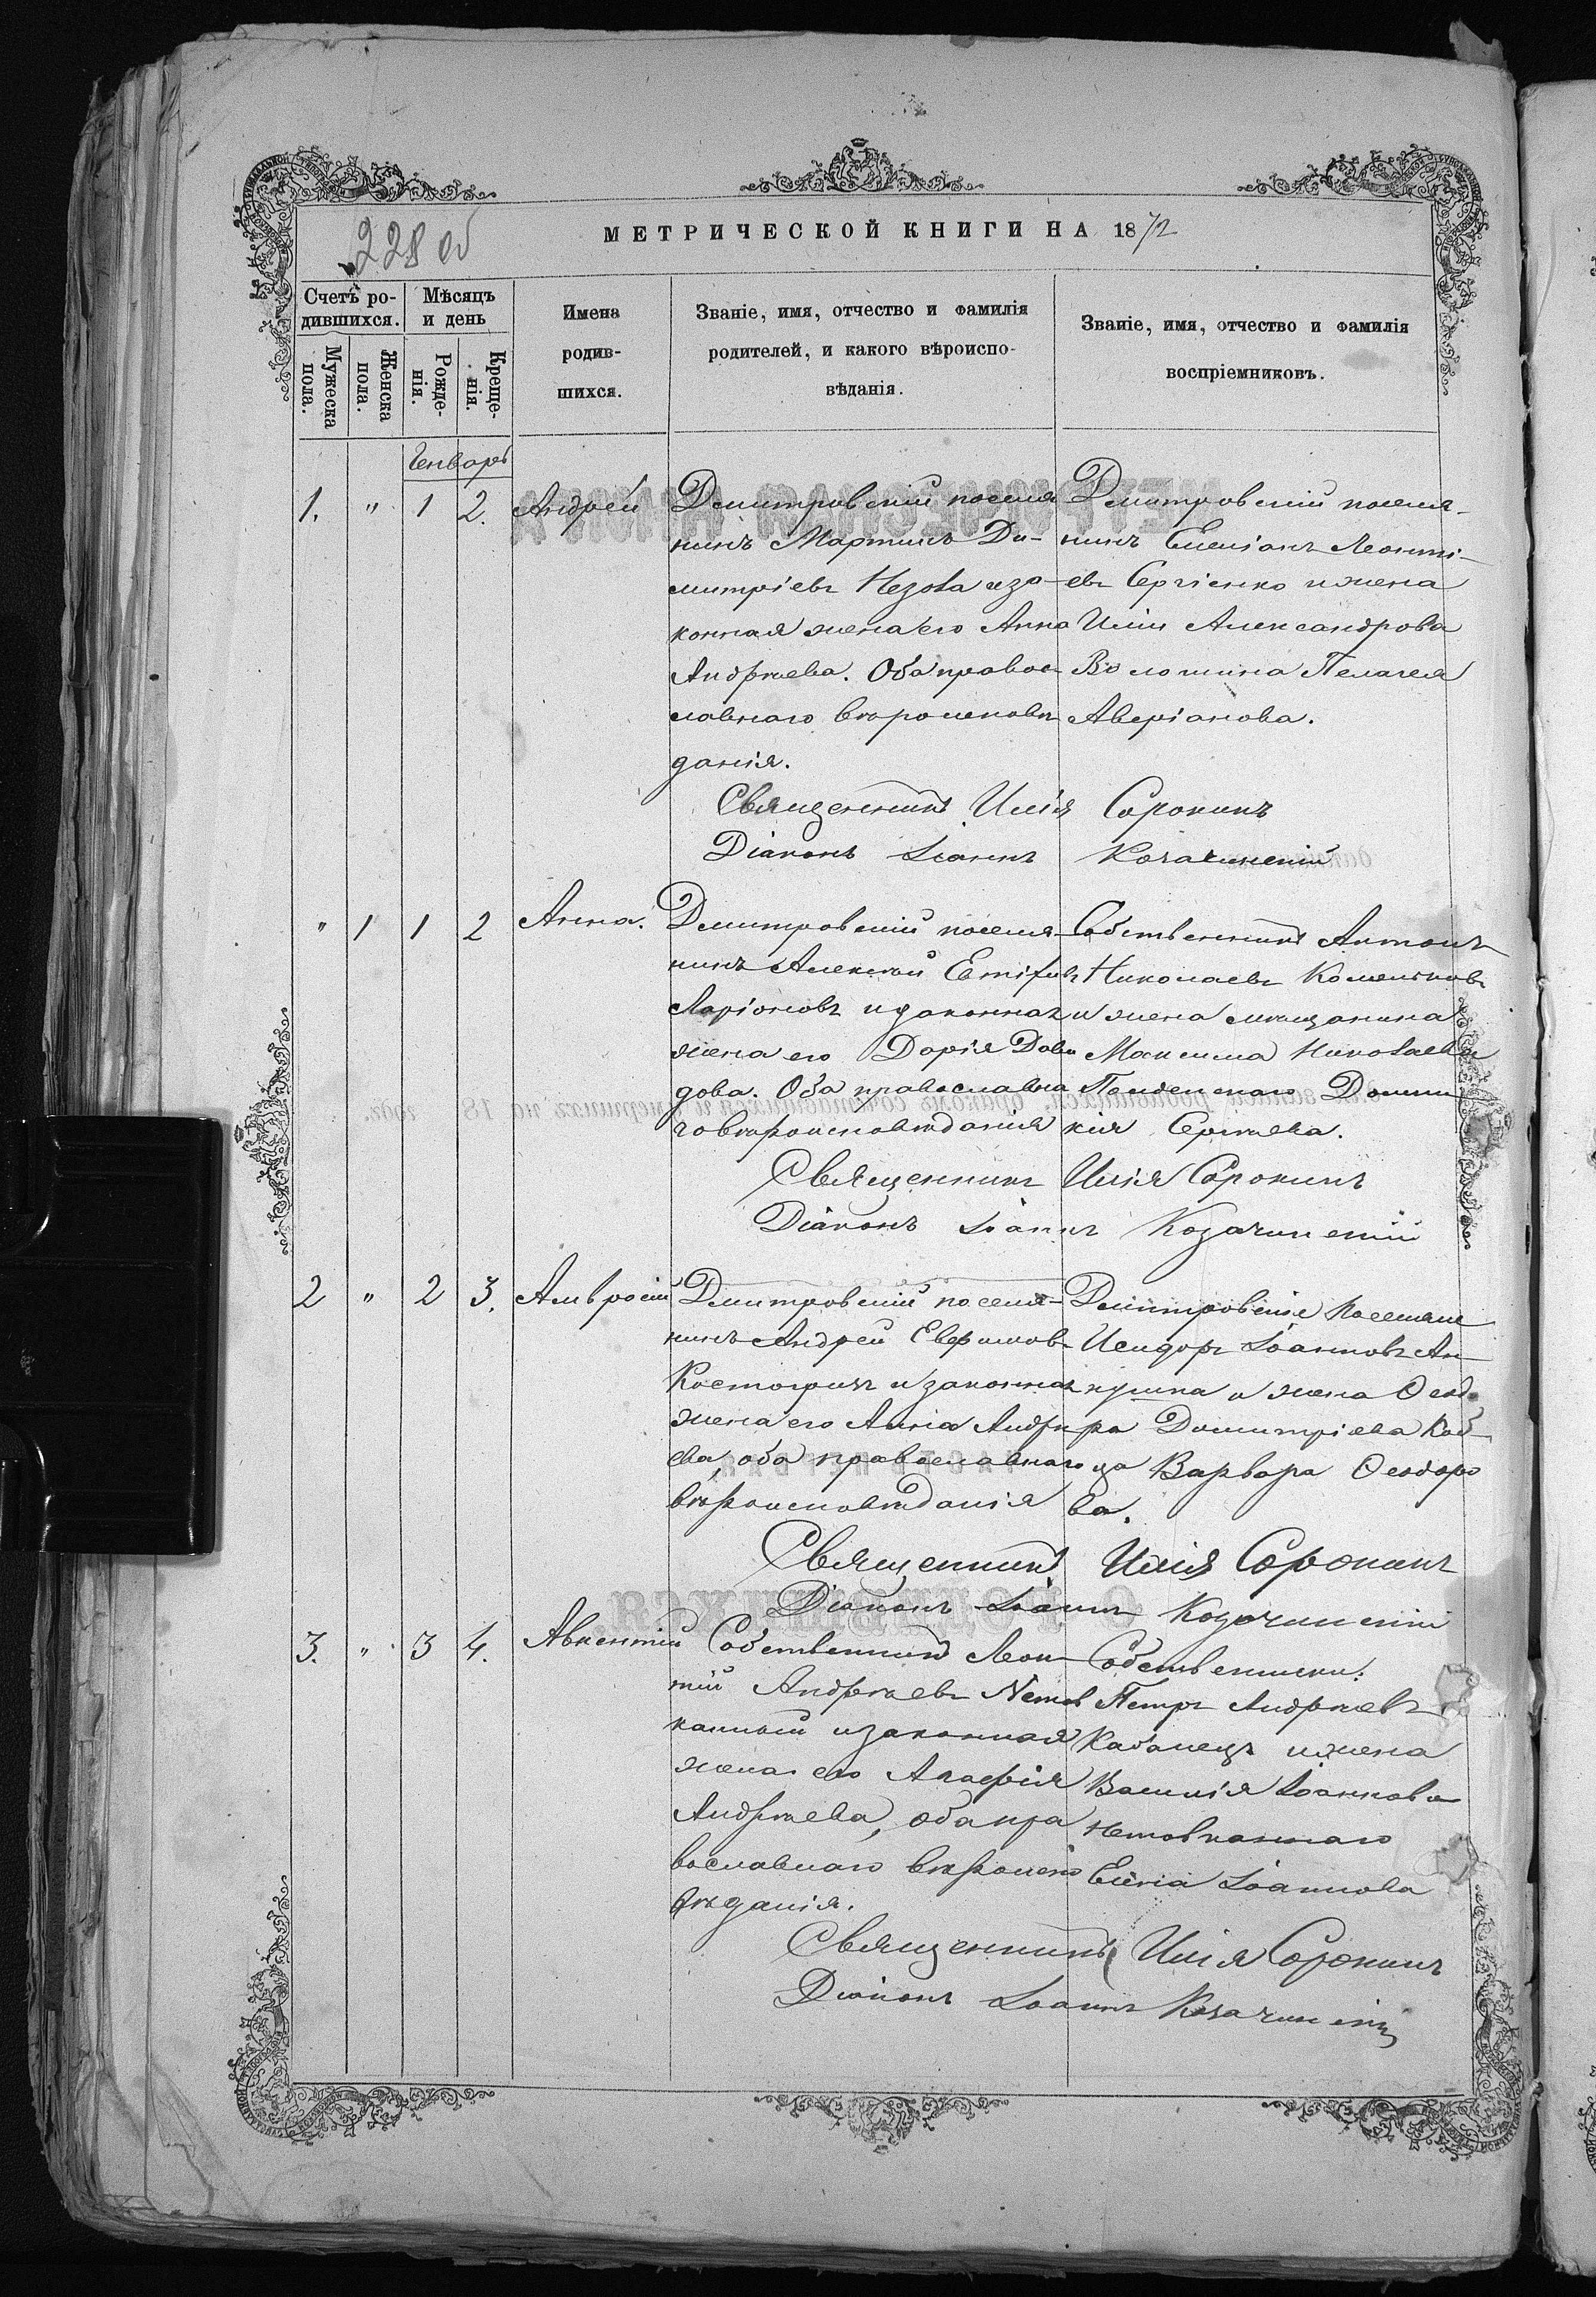 228 об
МЕТРИЧЕСКОЙ КНИГИ НА 1872
Счетъ ро-
дившихся.
Мѣсяцъ
и день
Мужеска
пола.
Женска
пола.
Рожде-
нія.
Креще-
нія.
Имена
родив-
шихся.
Званіе, имя, отчество и фамилія
родителей, и какого вѣроиспо-
вѣданія.
Званіе, имя, отчество и фамилія
воспріемниковъ.
Генварь
1. " 1 2. Андрей
Дмитровскій поселя
нинъ Мартинъ Ди-
митріевъ Незова и за-
конная жена его Анна
Андреева. Оба правос-
лавнаго вѣроисповѣ
данія.
Дмитровскій поселя-
нинъ Емеліанъ Леонті-
евъ Сергіенко и жена
Иліи Александрова
Волошина Пелагея
Аверіанова.
Священникъ Илія Сорокинъ
Діаконъ Іоаннъ Козачинскій
" 1 1 2 Анна.
Дмитровскій поселя-
нинъ Алексѣй
Ларіоновъ и законная
жена его Дарія Дави
дова. Оба православна
го вѣроисповѣданія
Собственникъ Антонъ
Николаевъ
и жена мѣщанина
Максима Николаева
Домни
кія Сергѣева.
Священникъ Илія Сорокинъ
Діаконъ Іоаннъ Козачинскій
2 " 2 3. Амвросій
Дмитровскій поселя-
нинъ Андрей
Костогризъ и законная
жена его Анна Андрѣ
ева, оба православнаго
вѣроисповѣданія
Дмитровскіе поселяне
Исидоръ Іоанновъ Ан-
пушка и жена Ѳеодо
ра Димитріева Каб-
ца Варвара Ѳеодоро
ва.
Священникъ Илія Сорокинъ
Діаконъ Іоаннъ Козачинскій
3. " 3 4. Авксентій
Собственникъ Леон-
тій Андреевъ Нетов
канный и законная
жена его Агафія
Андреева, оба пра
вославнаго вѣроиспо
вѣданія.
Собственники:
Петръ Андреевъ
Кабанецъ и жена
Василія Іоаннова
Нетовканнаго
Елена Іоаннова
Священникъ Илія Сорокинъ
Діаконъ Іоаннъ Козачинскій